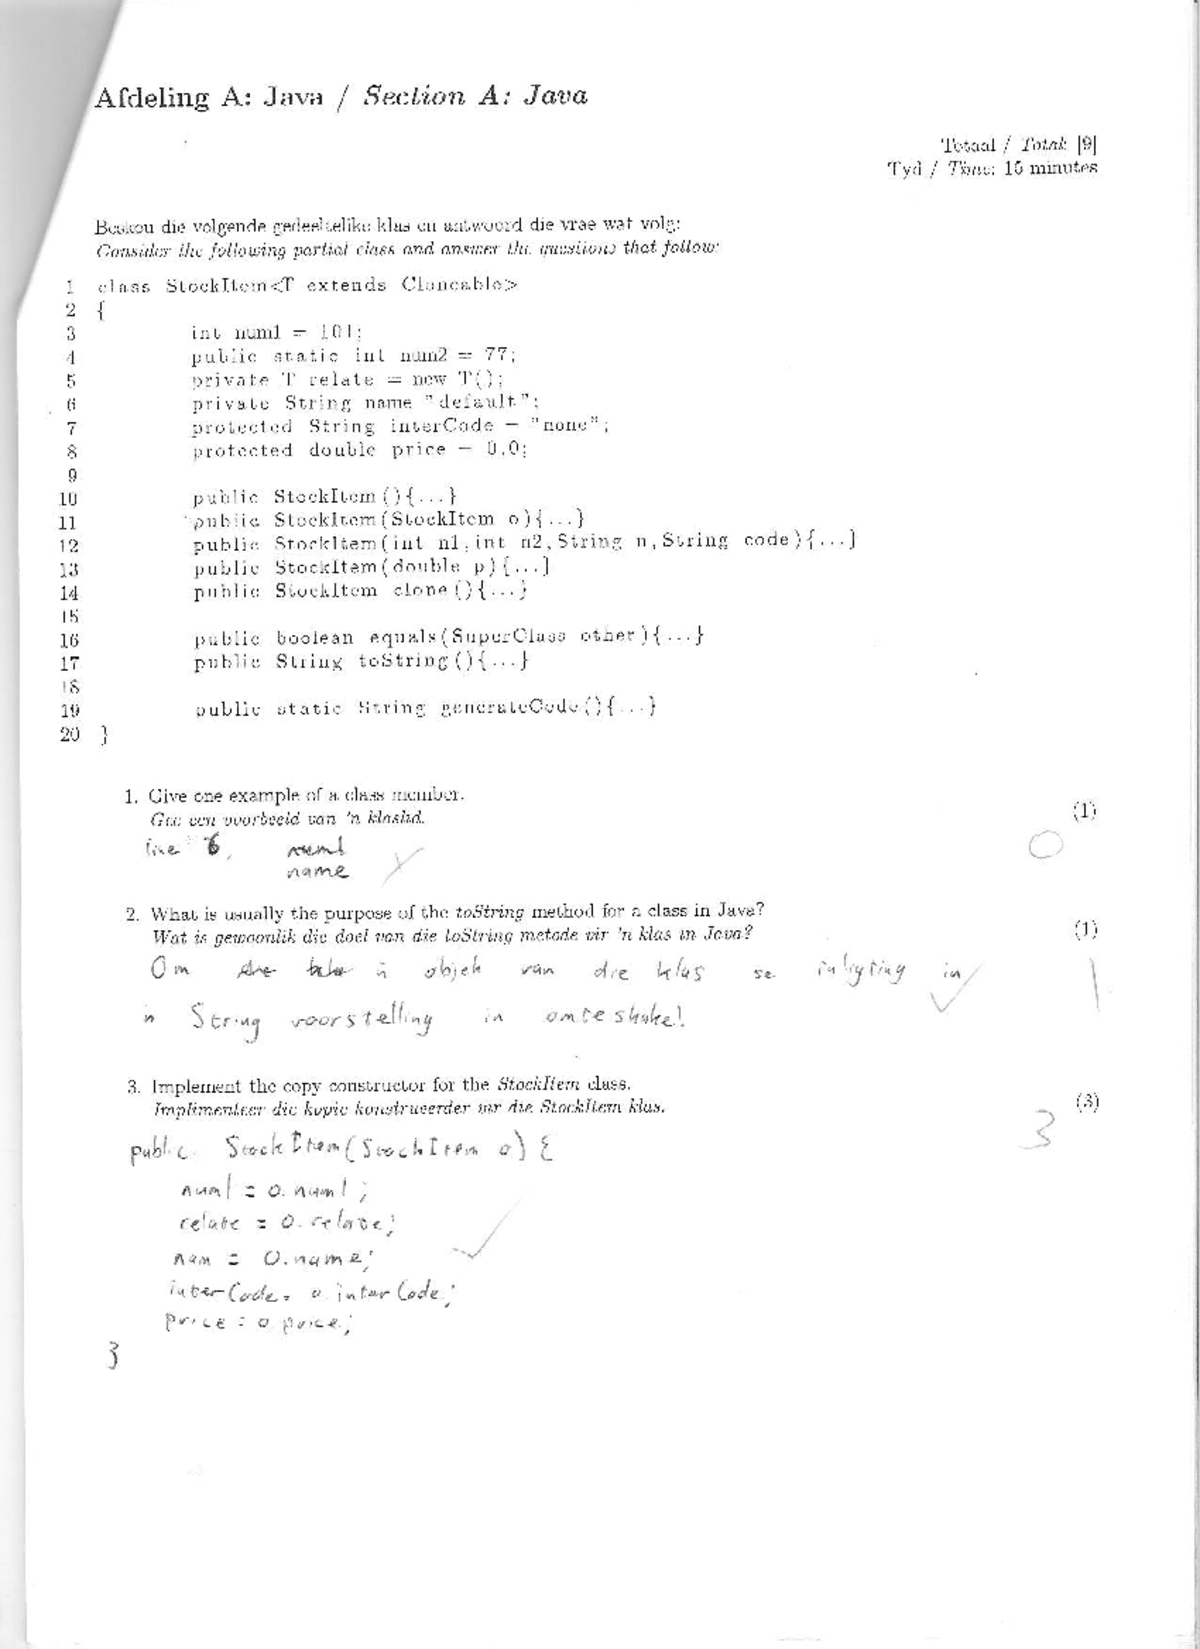 Afdeling A: Java / Section A: Java
Totaal / Total: [9]
Tyd / Time: 15 minutes
Beskou die volgende gedeeltelike klas en antwoord die vrae wat volg:
Consider the following partial class and answer the questions that follow:
1 class StockItem<T extends Cloneable>
2 {
3 int num1 = 101;
4 public static int num2 = 77;
5 private T relate = new T();
6 private String name "default";
7 protected String interCode = "none";
8 protected double price = 0.0;
9
10 public StockItem(){...}
11 public StockItem(StockItem o){...}
12 public StockItem(int n1,int n2,String n,String code){...}
13 public StockItem(double p){...}
14 public StockItem clone(){...}
15
16 public boolean equals(SuperClass other){...}
17 public String toString(){...}
18
19 public static String generateCode(){...}
20 }
1. Give one example of a class member.
Gee een voorbeeld van 'n klaslid.
(1)
line 6, num1
name
0
2. What is usually the purpose of the toString method for a class in Java?
Wat is gewoonlik die doel van die toString metode vir 'n klas in Java?
(1)
Om 'n objek van die klas se inligting in
'n String voorstelling in omteskakel!
1
3. Implement the copy constructor for the StockItem class.
Implimenteer die kopie konstrueerder vir die StockItem klas.
(3)
3
public StockItem(StockItem o) {
num1 = o.num1;
relate = o.relate;
nam = o.name;
interCode = o.interCode;
price = o.price;
}